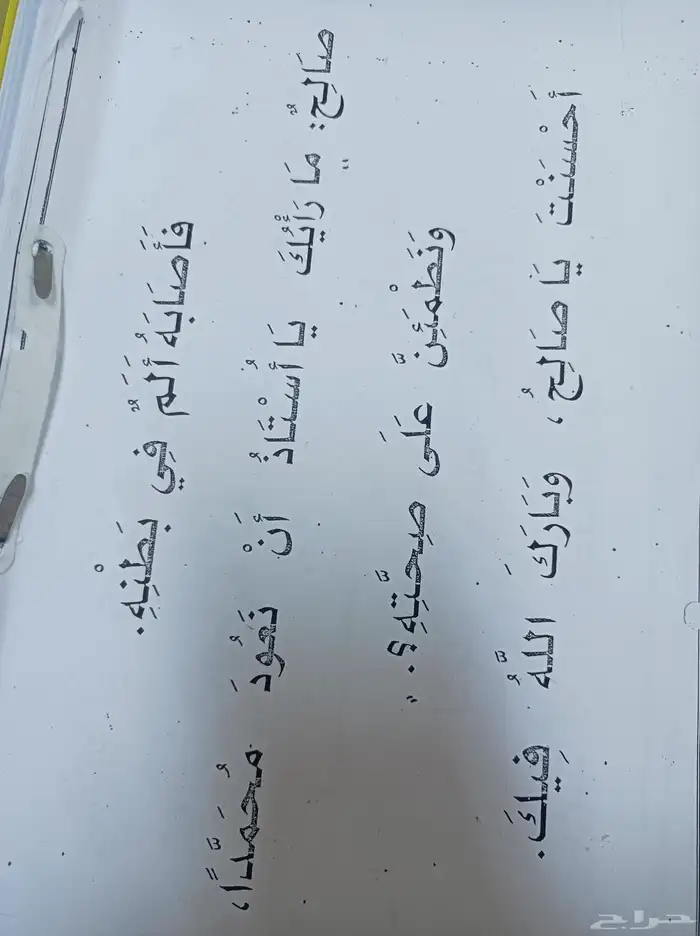 فَأَصَابَهُ أَلَمٌ فِي بَطْنِهِ.
صَالِحٌ: "مَا رَأْيُكَ يَا أُسْتَاذُ أَنْ نَعُودَ مُحَمَّدًا،
وَنَطْمَئِنَّ عَلَى صِحَّتِهِ؟."
أَحْسَنْتَ يَا صَالِحُ، وَبَارَكَ اللَّهُ فِيكَ.
حراج